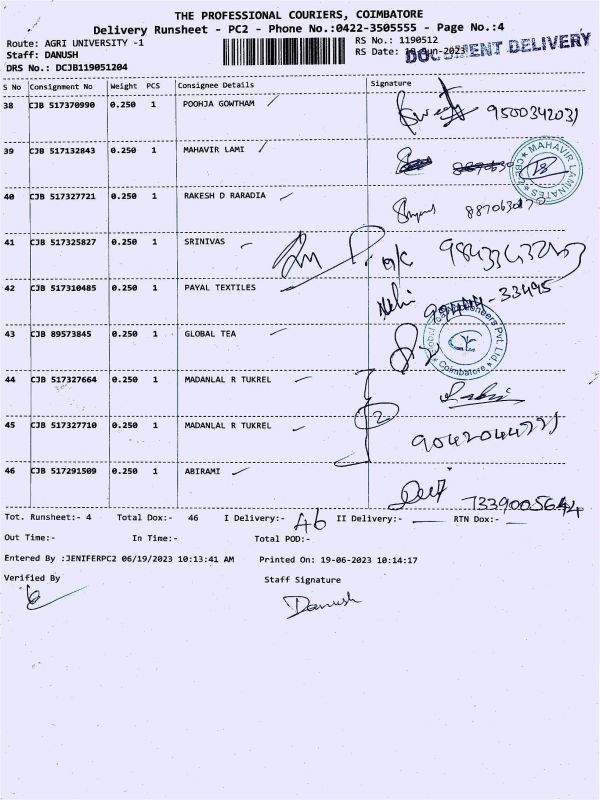 THE PROFESSIONAL COURIERS, COIMBATORE
Delivery Runsheet - PC2 - Phone No.:0422-3505555 - Page No.:4
Route: AGRI UNIVERSITY -1 RS No.: 1190512
Staff: DANUSH RS Date: -Jun-2023 DOCUMENT DELIVERY
DRS No.: DCJB119051204
S No Consignment No Weight PCS Consignee Details Signature
38 CJB 517370990 0.250 1 POOHJA GOWTHAM 9500342031
39 CJB 517132843 0.250 1 MAHAVIR LAMI MAHAVIR LAMINATES
40 CJB 517327721 0.250 1 RAKESH D RARADIA
41 CJB 517325827 0.250 1 SRINIVAS
42 CJB 517310485 0.250 1 PAYAL TEXTILES -33495
43 CJB 89573845 0.250 1 GLOBAL TEA Pvt. Ltd. Coimbatore
44 CJB 517327664 0.250 1 MADANLAL R TUKREL
2
45 CJB 517327710 0.250 1 MADANLAL R TUKREL
46 CJB 517291509 0.250 1 ABIRAMI
Tot. Runsheet:- 4 Total Dox:- 46 I Delivery:- 46 II Delivery:- RTN Dox:-
Out Time:- In Time:- Total POD:-
Entered By :JENIFERPC2 06/19/2023 10:13:41 AM Printed On: 19-06-2023 10:14:17
Verified By Staff Signature
Danush